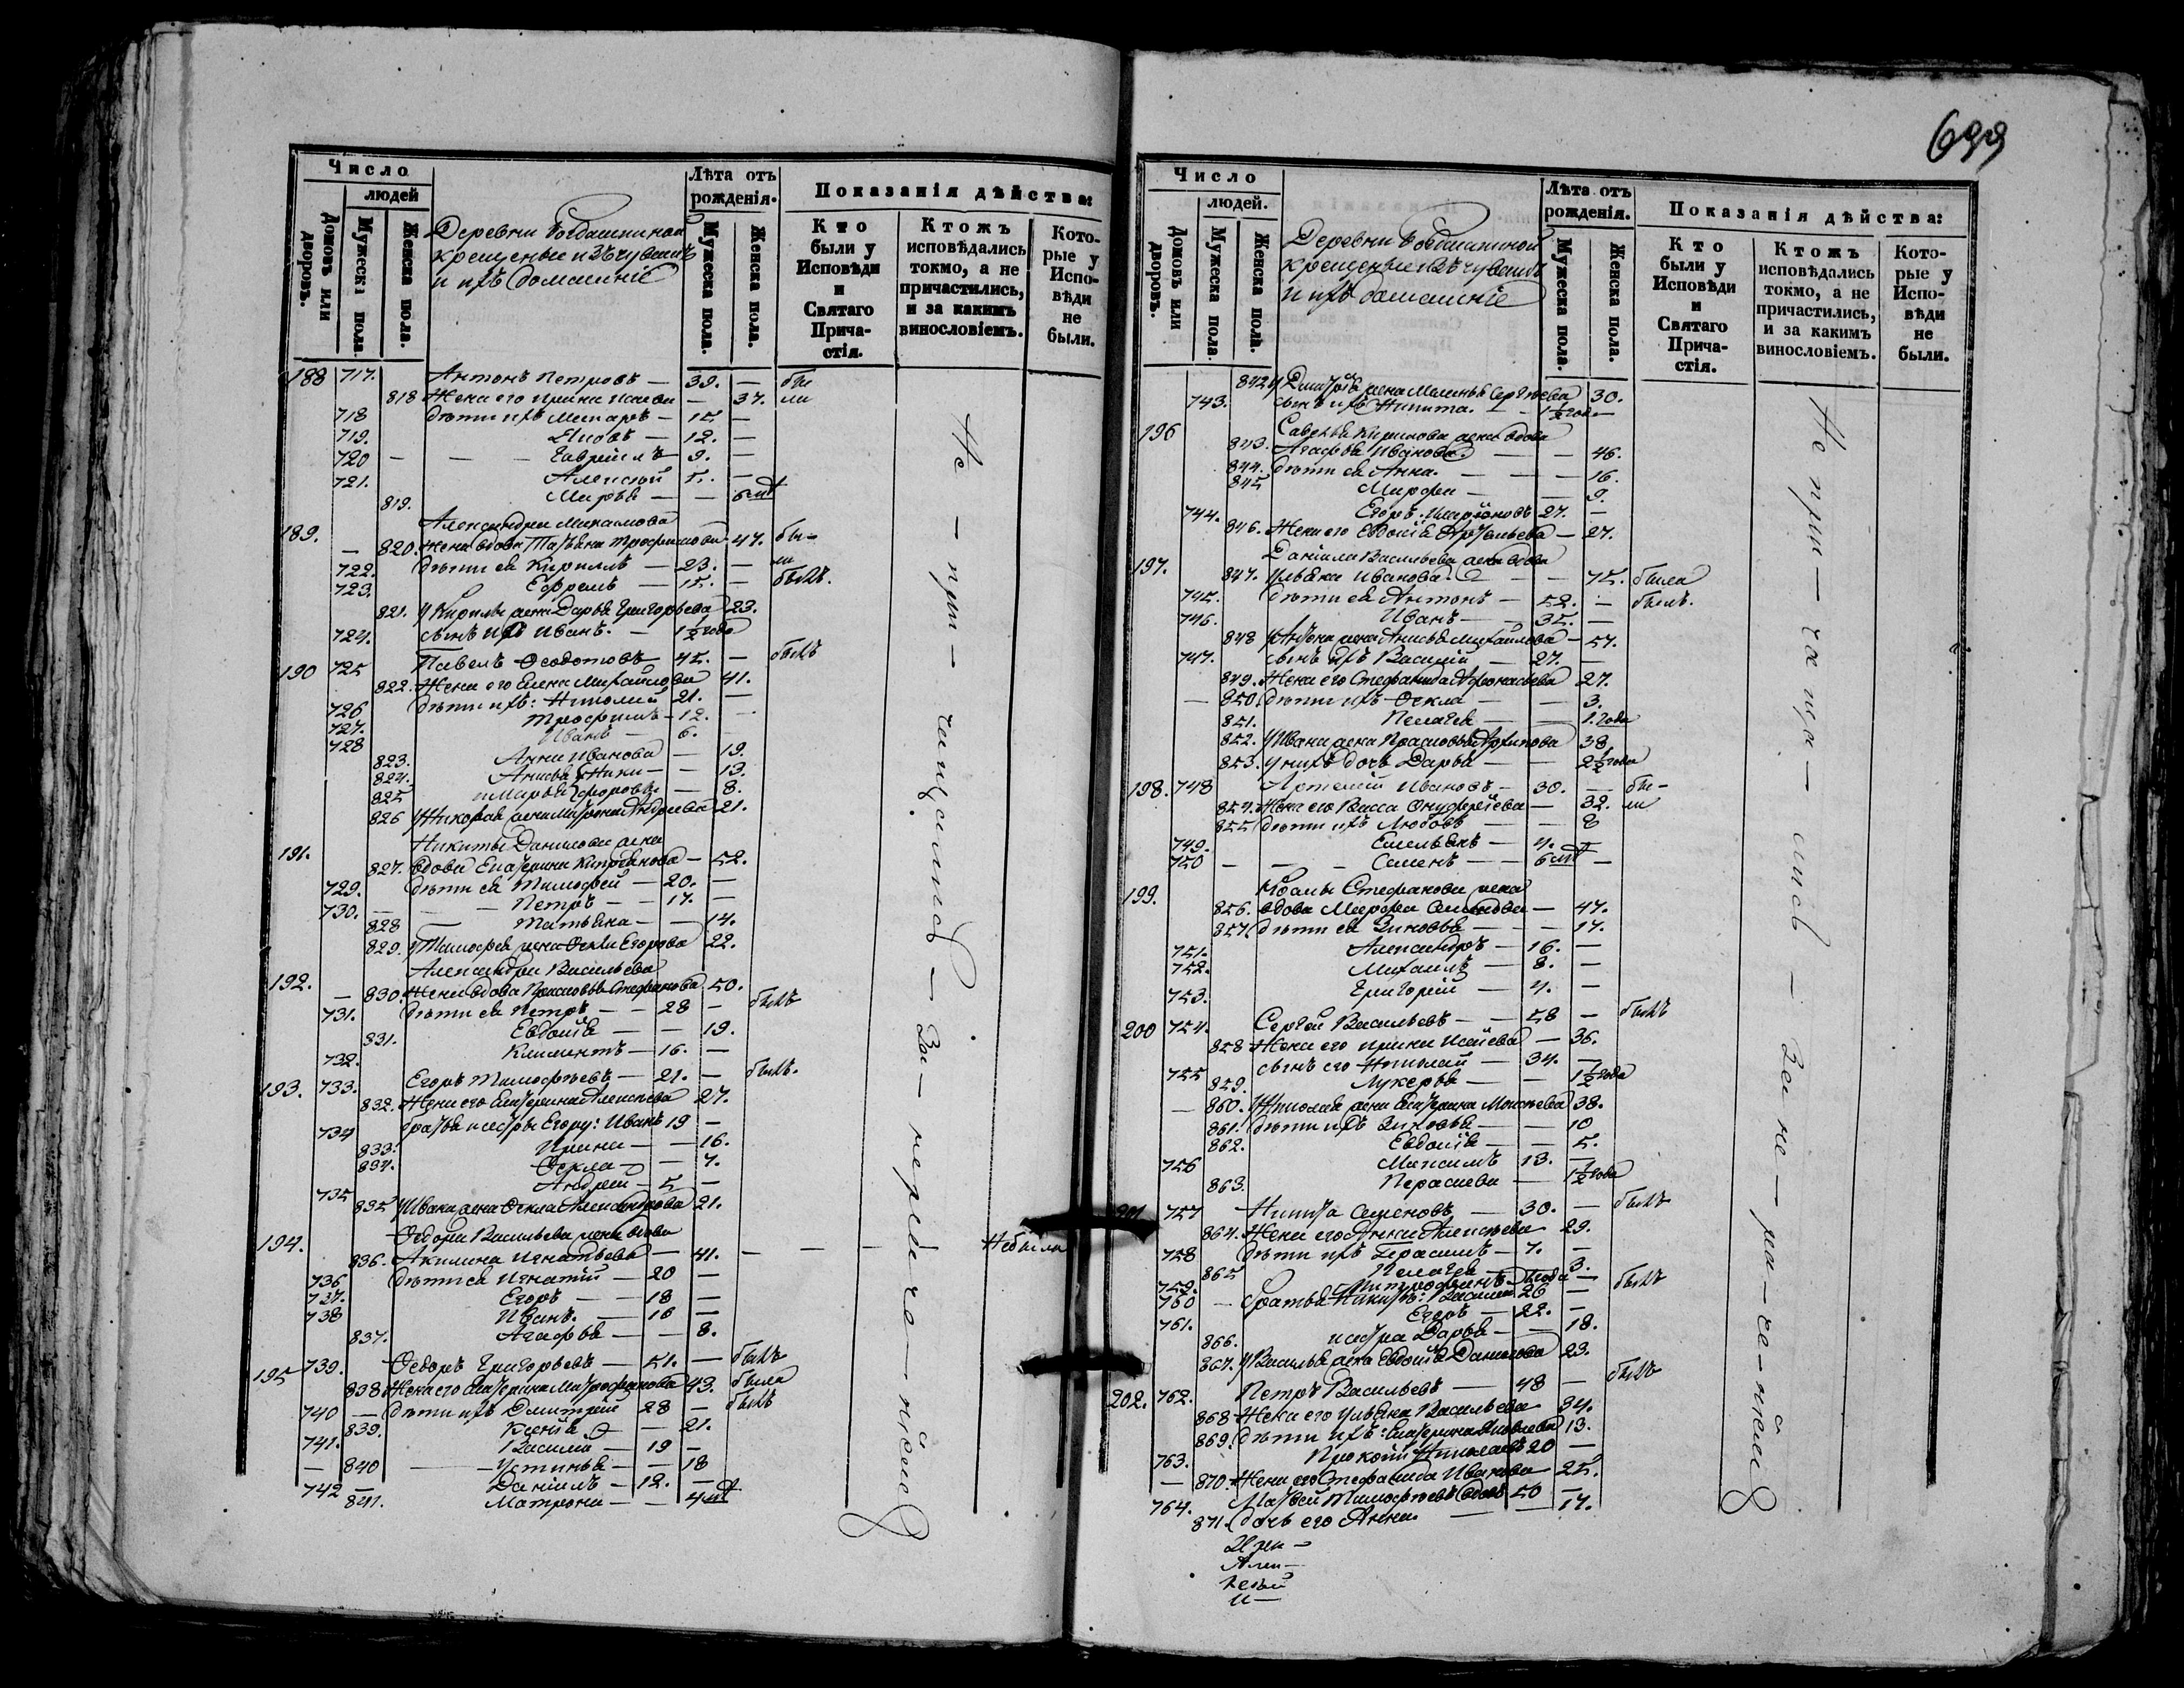 699
Число
людей
Домовъ или дворовъ.
Мужеска пола.
Женска пола.
Деревни Богдашкиной
крещеные изъ чувашъ
и ихъ домашніе
Лѣта отъ
рожденія.
Мужеска пола.
Женска пола.
Показанія дѣйства:
Кто
были у
Исповѣди
и
Святаго
Прича-
стія.
Ктожъ
исповѣдались
токмо, а не
причастились,
и за какимъ
винословіемъ.
Кото-
рые у
Испо-
вѣди
не
были.
188 717. Антонъ Петровъ — 39. — бы
818 Жена его Ирина — 37. ли
718 дѣти ихъ — 15 —
719. — 12. —
720 — — — Гавріилъ — 9. —
721. Алексѣй 5. —
819. Марѳа — —
189. Александра
— 820. жена вдова Татьяна Трофимова 47. бы-
722. дѣти ея Кириллъ — 23. — ли
723. Ефремъ — 15. — былъ.
821. У Кирилы жена Дарья Григорьева 23.
724. сынъ ихъ Иванъ. — 1½ года
190 725 Павелъ Ѳедотовъ — 45. — былъ
822. Жена его Елена Михайлова 41.
726 дѣти ихъ: Николай 21. —
727. Трофимъ — 12. —
728 Иванъ — 6. —
823. Анна Иванова — 19.
824. Анисья — — 13.
825 Марья — 8.
826 жена Андреева 21.
191. Никиты Данилова жена
827. вдова Екатерина — 52.
729. дѣти ея Тимофей — 20. —
730. — — — Петръ — — 17. —
828 — Татьяна — — 14.
829. У Тимофея жена Ѳекла Егорова 22.
192. Александра Васильева
— 830. жена вдова Прасковья Стефанова 50.
731. дѣти ея Петръ — — 28 — былъ
831. Евдокія — — 19.
732. Климентъ — 16. —
193. 733. Егоръ Тимофѣевъ — 21. — былъ.
832. Жена его Екатерина Алексѣева 27.
734 братья и сестры Егору: Иванъ 19 —
833. Ирина — — 16.
834. Ѳекла — — 7.
735 Андрей — 5 —
835 У Ивана жена Ѳекла Александрова 21.
194. Ѳедора Васильева жена вдова
836. Акилина Игнатьева — 41. — — — Небыла
736 дѣти ея Игнатій — 20 —
737. Егоръ — — 18 —
738 Иванъ. — 16 —
837. Агафья — — 8.
195 739. Ѳедоръ Григорьевъ — 51. — былъ
838 Жена его Екатерина Митрофанова 43. была
740 — дѣти ихъ Дмитрій 28 — былъ
839. Ксенія — 21.
741. Василій — 19 —
— 840 — Устинья — — 18
742 — Даніилъ — 12. —
841. Матрона — —
Не — при — чащались — За — нерѣче — ніемъ
Число
людей.
Домовъ или дворовъ.
Мужеска пола.
Женска пола.
Деревни Богдашкиной
крещеные изъ чувашъ
и ихъ домашніе
Лѣта отъ
рожденія.
Мужеска пола.
Женска пола.
Показанія дѣйства:
Кто
были у
Исповѣди
и
Святаго
Прича-
стія.
Ктожъ
исповѣдались
токмо, а не
причастились,
и за какимъ
винословіемъ.
Кото-
рые у
Испо-
вѣди
не
были.
842 У Дмитрія жена Сергѣева 30.
743. сынъ ихъ Никита. — — 1½ года —
196 Савелья Кирилова жена вдова
843. Агафья Иванова. — — 46.
844. дѣти ея Анна. — — — 16.
845 Марфа — — 9.
744. Егоръ 27. —
846. Жена его Евдокія — 27.
197. Даніила Васильева жена вдова
847. Ульяна Иванова. — — 75. была
745. дѣти ея Антонъ — 52. — былъ.
746. Иванъ — — 35. —
848 У Антона жена Анисья Михайлова — 57.
747. сынъ ихъ Василій — 27. —
849. Жена его Стефанида Афонасьева 27.
— 850. дѣти ихъ — Ѳекла — — 3.
851. Пелагея — — 1. года
852. У Ивана жена Прасковья Архипова 38.
853. у нихъ дочь Дарья — — 2½ года
198. 748 Артемій Ивановъ — 30. — бы-
854. Жена его Васса Онуфріева — 32. ли
855 дѣти ихъ Любовь — — 8
749. Емельянъ — 4. —
750 — — — Семенъ — — —
199. Стефанова жена
856. вдова Марфа — 47.
857. дѣти ея Зиновья — — — 17.
751. Александръ — 16. —
752. Михаилъ — 8. —
753. Григорій — 4. —
200 754. Сергѣй Васильевъ — — 58 — былъ
858 Жена его Ирина Исаева — 36.
755 сынъ его Николай — 34. —
859. Лукерья — — 1½ года
— 860. У Николая жена Екатерина Моисѣева 38.
861. дѣти ихъ Зиновья — — 10
862. Евдокія — — 5.
756 Максимъ 13. —
863. Парасцева — — 1½ года
201 757 Никита Семеновъ — 30. — былъ
864. Жена его Анна Алексѣева 29.
758 дѣти ихъ Герасимъ — 7. —
865 Пелагея — — 3.
759. Митрофанъ —
760 — братья Никиты: Василій 26 — былъ
761. Егоръ — 22. —
866. и сестра Дарья — — 18.
867. У Василья жена Евдокія Данилова 23.
202. 762. Петръ Васильевъ — 48 — былъ
868 Жена его Ульяна Васильева 34.
869. дѣти ихъ: Екатерина 13.
763. Прокопій Николаевъ 20 —
— 870. Жена его Стефанида Иванова 25.
764. Матвѣй Тимофѣевъ вдовъ 50 —
871. дочь его Анна. — — 17.
Іерей —
Алек —
сѣй
И —
Не при — ча ща — лись — За не — рѣ — че — ніемъ